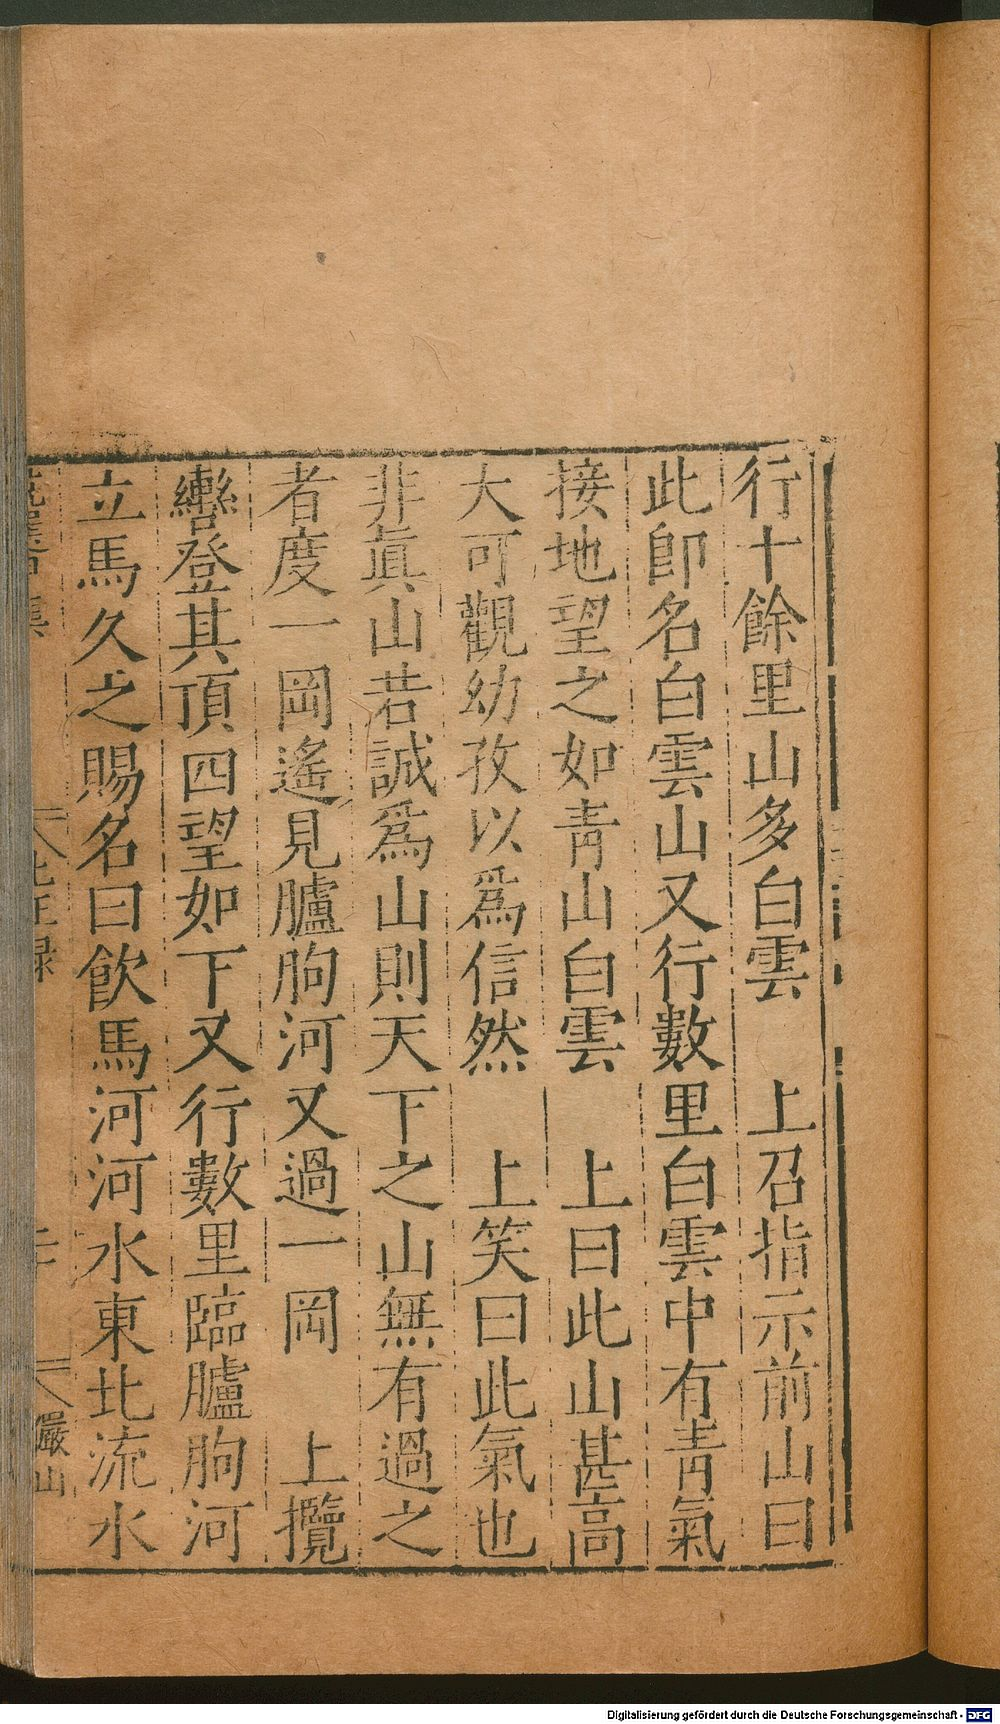 行十餘里山多白雲　上召指示前山曰
此卽名白雲山又行數里白雲中有靑氣
接地望之如靑山白雲　上曰此山甚高
大可觀幼孜以爲信然　上笑曰此氣也
非眞山若誠爲山則天下之山無有過之
者度一岡遙見臚朐河又過一岡　上攬
轡登其頂四望如下又行數里臨臚朐河
立馬久之賜名曰飮馬河河水東北流水
儼山
Digitalisierung gefördert durch die Deutsche Forschungsgemeinschaft - DFG